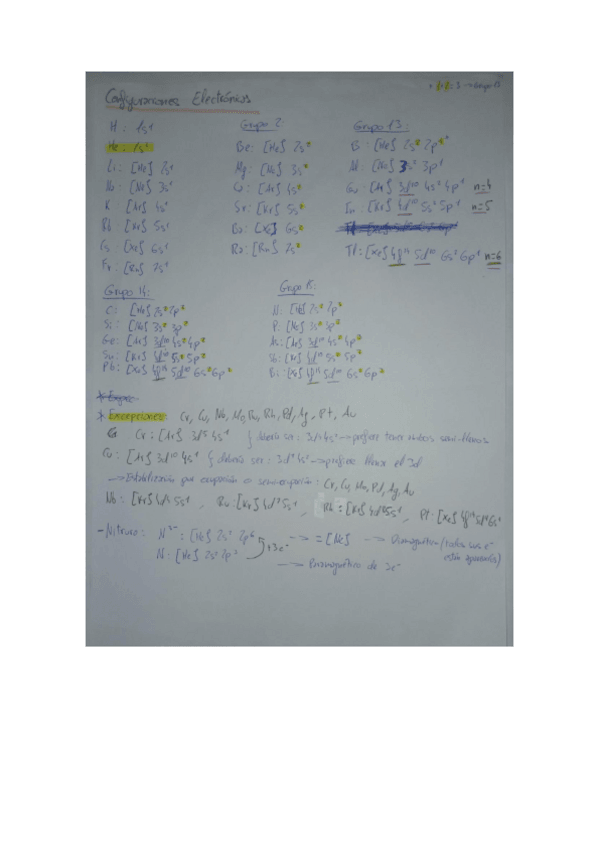 Configuraciones Electrónicas
H: 1s¹
He: 1s²
Li: [He] 2s¹
Na: [Ne] 3s¹
K: [Ar] 4s¹
Rb: [Kr] 5s¹
Cs: [Xe] 6s¹
Fr: [Rn] 7s¹
Grupo 2:
Be: [He] 2s²
Mg: [Ne] 3s²
Ca: [Ar] 4s²
Sr: [Kr] 5s²
Ba: [Xe] 6s²
Ra: [Rn] 7s²
Grupo 13:
B: [He] 2s² 2p¹
Al: [Ne] 3s² 3p¹
Ga: [Ar] 3d¹⁰ 4s² 4p¹ n=4
In: [Kr] 4d¹⁰ 5s² 5p¹ n=5
Tl: [Xe] 4f¹⁴ 5d¹⁰ 6s² 6p¹ n=6
Grupo 14:
C: [He] 2s² 2p²
Si: [Ne] 3s² 3p²
Ge: [Ar] 3d¹⁰ 4s² 4p²
Sn: [Kr] 4d¹⁰ 5s² 5p²
Pb: [Xe] 4f¹⁴ 5d¹⁰ 6s² 6p²
Grupo 15:
N: [He] 2s² 2p³
P: [Ne] 3s² 3p³
As: [Ar] 3d¹⁰ 4s² 4p³
Sb: [Kr] 4d¹⁰ 5s² 5p³
Bi: [Xe] 4f¹⁴ 5d¹⁰ 6s² 6p³
* Excepciones: Cr, Cu, Nb, Mo, Ru, Rh, Pd, Ag, Pt, Au
Cr: [Ar] 3d⁵ 4s¹ } debería ser: 3d⁴ 4s² → prefiere tener ambos semi-llenos
Cu: [Ar] 3d¹⁰ 4s¹ } debería ser: 3d⁹ 4s² → prefiere llenar el 3d
→ Estabilización por ocupación o semiocupación: Cr, Cu, Mo, Pd, Ag, Au
Nb: [Kr] 4d⁴ 5s¹, Ru: [Kr] 4d⁷ 5s¹, Rh: [Kr] 4d⁸ 5s¹, Pt: [Xe] 4f¹⁴ 5d⁹ 6s¹
- Nitruro: N³⁻: [He] 2s² 2p⁶ → = [Ne] → Diamagnético (todos sus e⁻ están apareados)
N: [He] 2s² 2p³ +3e⁻ → Paramagnético de 3e⁻